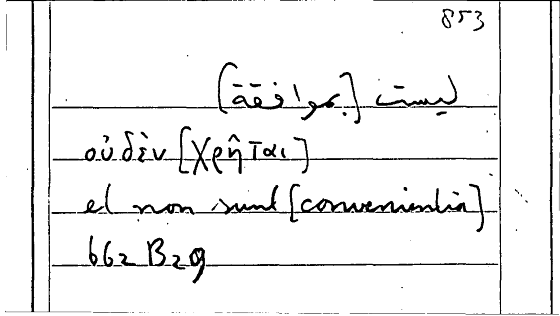 853
ليست [بموافقة]
οὐδὲν [χρῆται]
et non sunt [convenientia]
662 B29